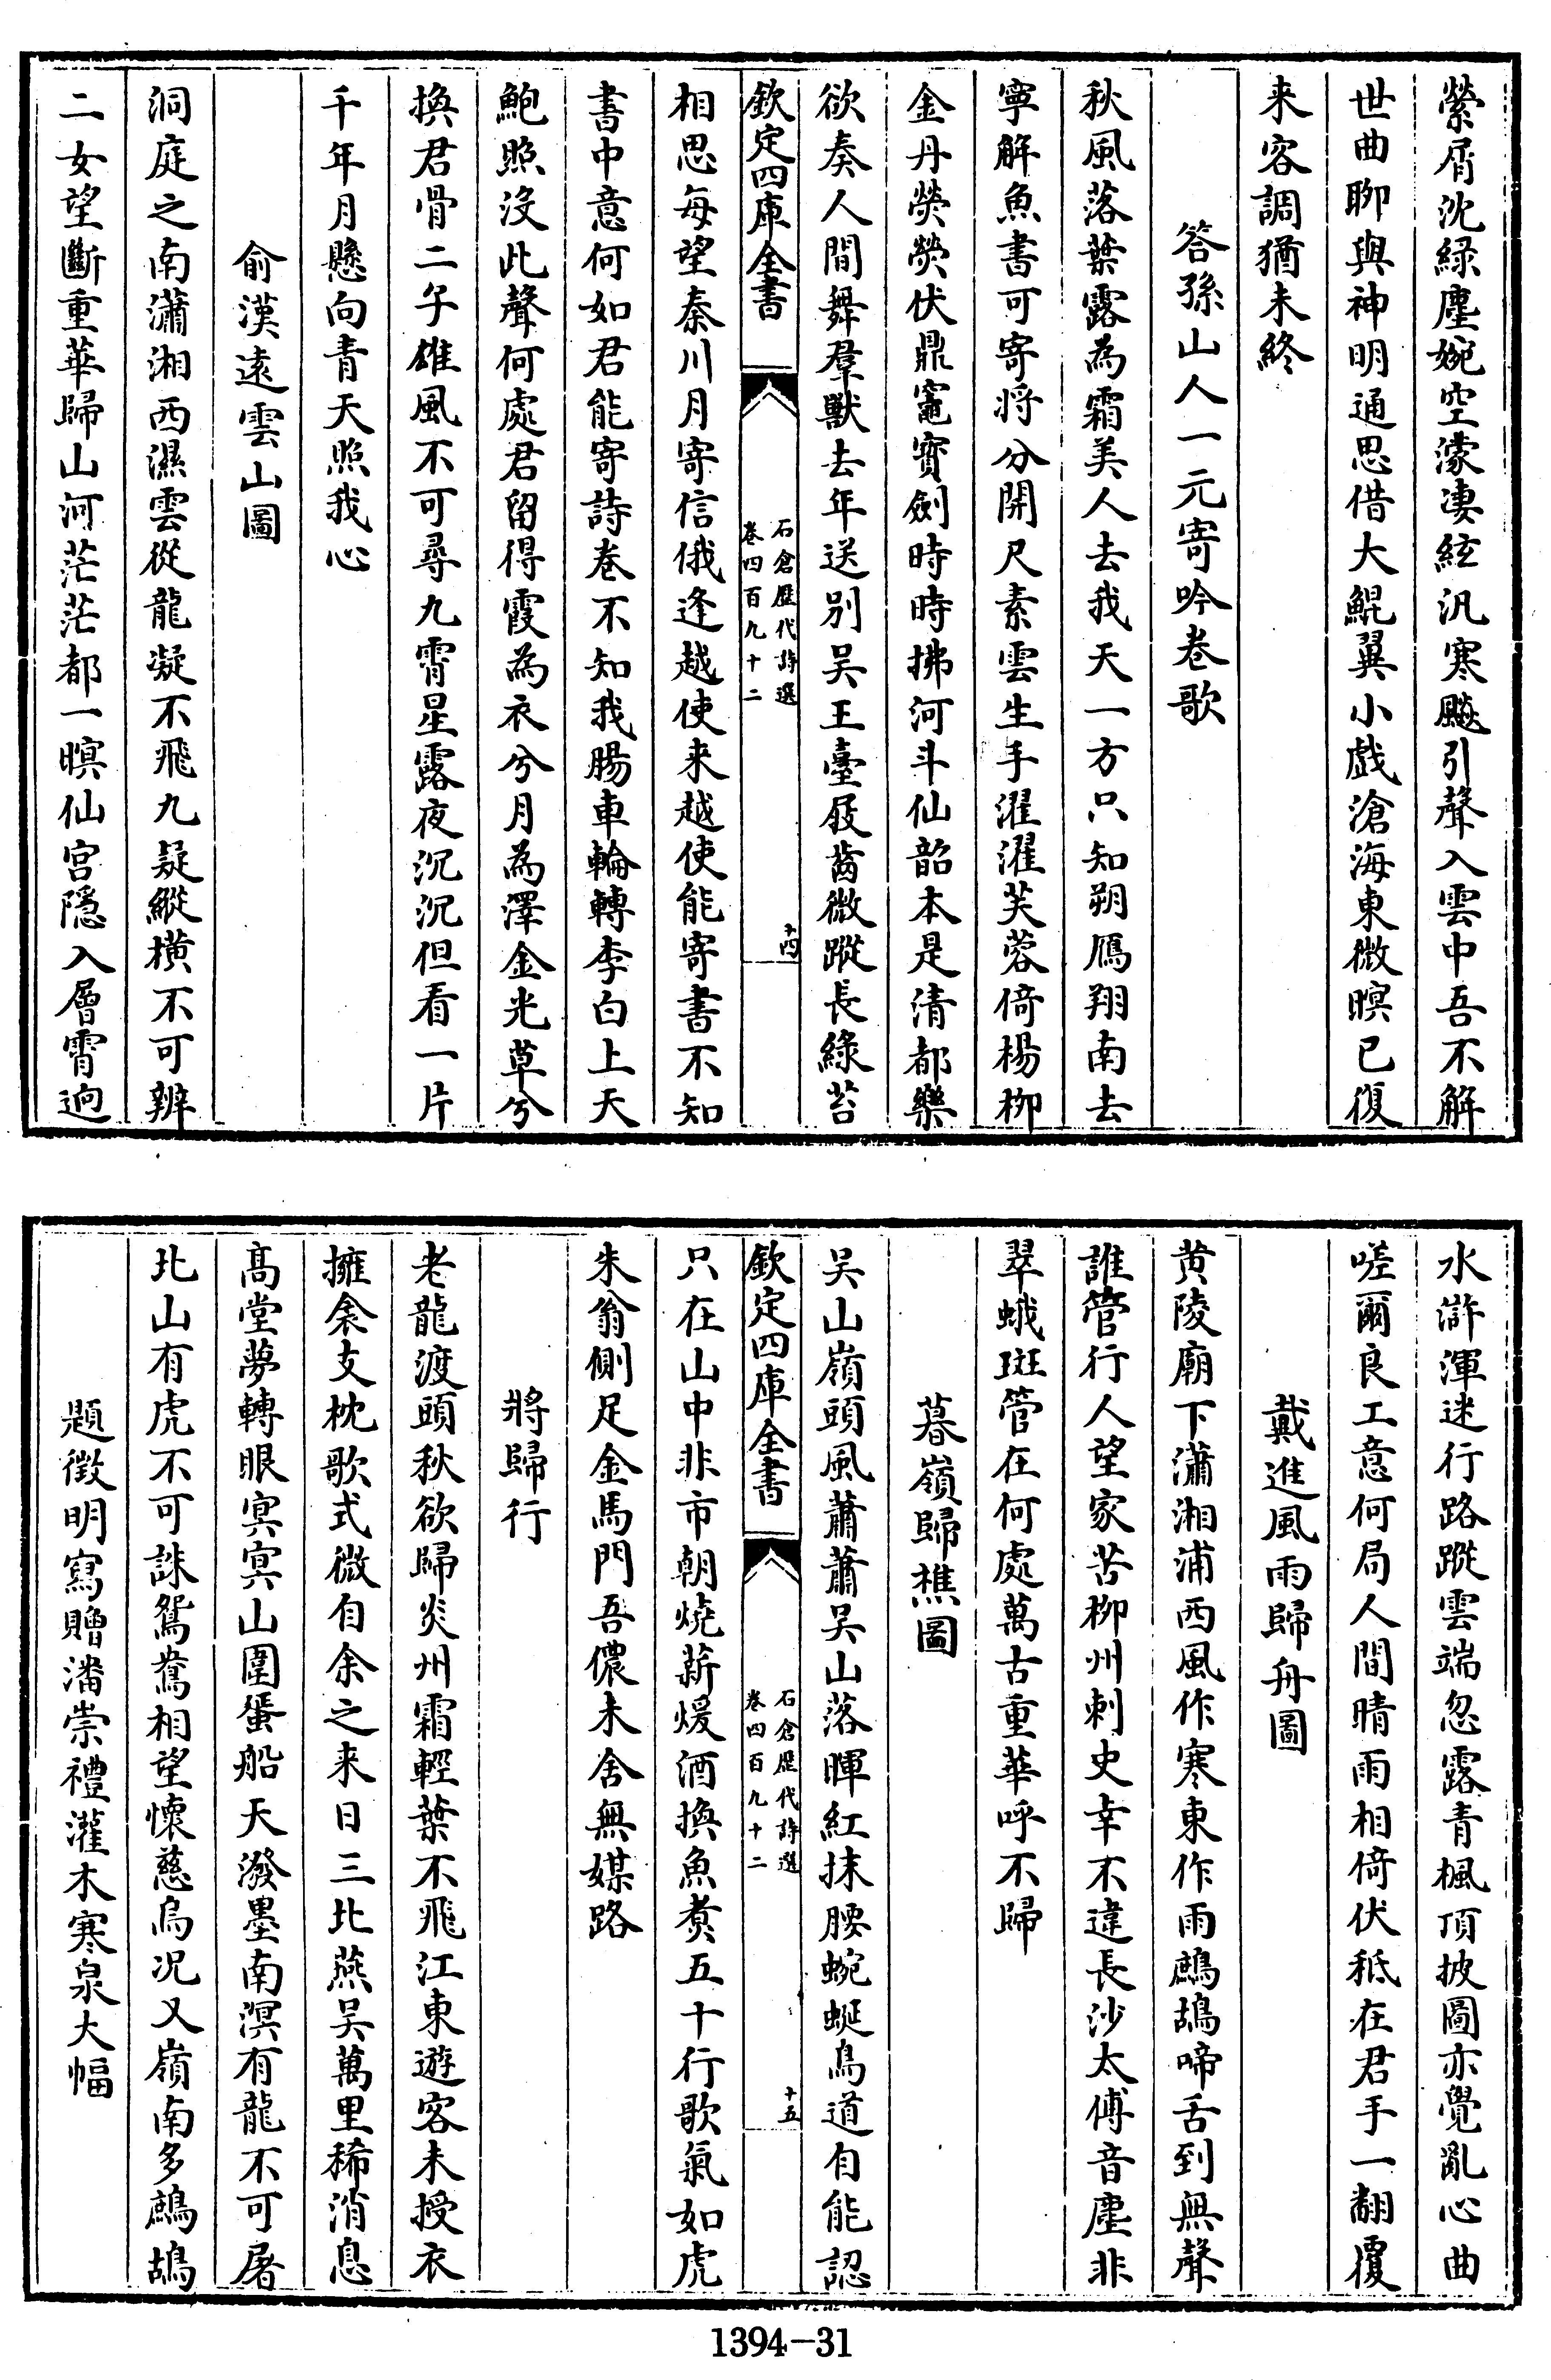 縈屑沈綠塵婉空濛凄絃汎寒飈引聲入雲中吾不解
世曲聊與神明通思借大鯤翼小戲滄海東微暝已復
来容調猶未終
答孫山人一元寄吟卷歌
秋風落葉露為霜美人去我天一方只知朔鴈翔南去
寧解魚書可寄將分開尺素雲生手濯濯芙蓉倚楊柳
金丹熒熒伏鼎竈寳劍時時拂河斗仙韶本是清都樂
欲奏人間舞羣獸去年送別吴王臺屐齒微蹤長綠苔
欽定四庫全書
石倉歷代詩選
卷四百九十二
十四
相思每望秦川月寄信俄逢越使来越使能寄書不知
書中意何如君能寄詩卷不知我腸車輪轉李白上天
鮑照沒此聲何處君留得霞為衣兮月為澤金光草兮
換君骨二子雄風不可尋九霄星露夜沉沉但看一片
千年月懸向青天照我心
俞漢遠雲山圖
洞庭之南瀟湘西濕雲從龍凝不飛九疑縱橫不可辨
二女望斷重華歸山河茫茫都一暝仙宫隱入層霄逈
水滸渾迷行路蹤雲端忽露青楓頂披圖亦覺亂心曲
嗟爾良工意何局人間晴雨相倚伏秪在君手一翻覆
戴進風雨歸舟圖
黄陵廟下瀟湘浦西風作寒東作雨鷓鴣啼舌到無聲
誰管行人望家苦柳州刺史幸不違長沙太傅音塵非
翠蛾斑管在何處萬古重華呼不歸
暮嶺歸樵圖
吴山嶺頭風蕭蕭吴山落暉紅抹腰蜿蜒鳥道自能認
欽定四庫全書
石倉歷代詩選
卷四百九十二
十五
只在山中非市朝燒薪煖酒換魚煑五十行歌氣如虎
朱翁側足金馬門吾儂未舍無媒路
將歸行
老龍渡頭秋欲歸炎州霜輕葉不飛江東遊客未授衣
擁衾支枕歌式微自余之来日三北燕吴萬里稀消息
髙堂夢轉眼㝠㝠山圍蜑船天潑墨南溟有龍不可屠
北山有虎不可誅鴛鴦相望懷慈烏况又嶺南多鷓鴣
題徵明寫贈潘崇禮灌木寒泉大幅
1394-31